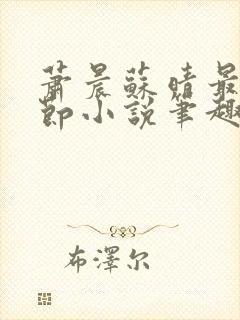 蕭晨蘇晴最
節小說筆趣
布澤尔